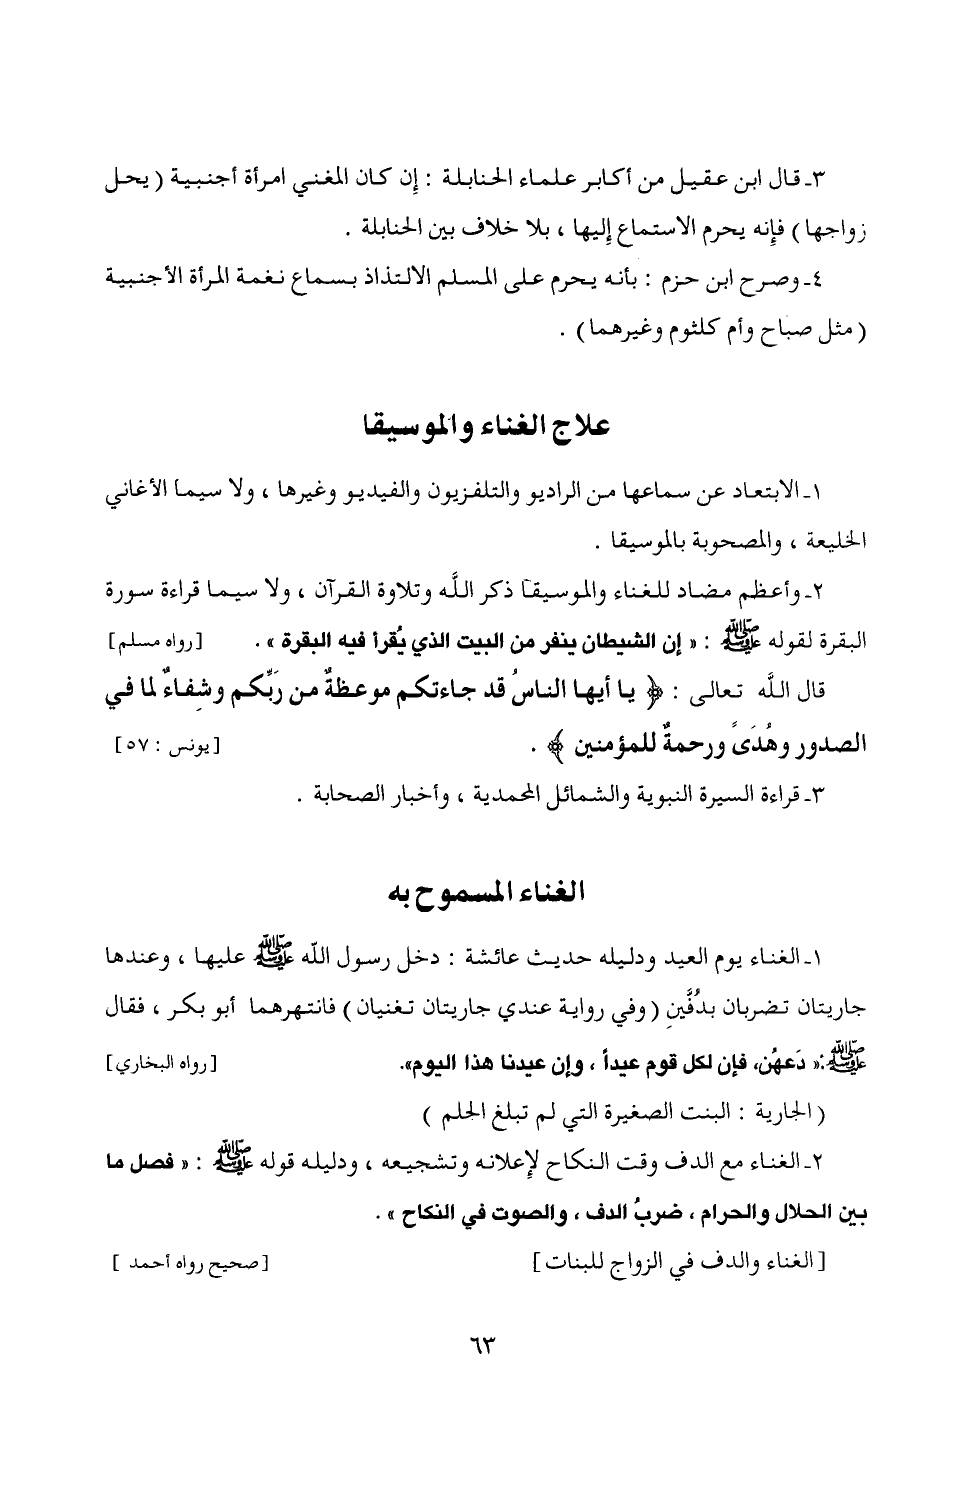 ٣ـ قال ابن عقيل من أكابر علماء الحنابلة : إن كان المغني امرأة أجنبية ( يحل
زواجها ) فإنه يحرم الاستماع إليها ، بلا خلاف بين الحنابلة .
٤ـ وصرح ابن حزم : بأنه يحرم على المسلم الالتذاذ بسماع نغمة المرأة الأجنبية
( مثل صباح وأم كلثوم وغيرهما ) .
علاج الغناء والموسيقا
١ـ الابتعاد عن سماعها من الراديو والتلفزيون والفيديو وغيرها ، ولا سيما الأغاني
الخليعة ، والمصحوبة بالموسيقا .
٢ـ وأعظم مضاد للغناء والموسيقا ذكر اللَّه وتلاوة القرآن ، ولا سيما قراءة سورة
البقرة لقوله ﷺ : « إن الشيطان ينفر من البيت الذي يُقرأ فيه البقرة » . [رواه مسلم]
قال اللَّه تعالى : ﴿ يا أيها الناسُ قد جاءتكم موعظةٌ من رَبِّكم وشِفاءٌ لما في
الصدور وهُدَىً ورحمةٌ للمؤمنين ﴾ . [يونس : ٥٧]
٣ـ قراءة السيرة النبوية والشمائل المحمدية ، وأخبار الصحابة .
الغناء المسموح به
١ـ الغناء يوم العيد ودليله حديث عائشة : دخل رسول اللّه ﷺ عليها ، وعندها
جاريتان تضربان بدُفَّينِ ( وفي رواية عندي جاريتان تغنيان ) فانتهرهما أبو بكر ، فقال
ﷺ :« دَعهُن، فإن لكل قوم عيداً ، وإن عيدنا هذا اليوم». [رواه البخاري]
( الجارية : البنت الصغيرة التي لم تبلغ الحلم )
٢ـ الغناء مع الدف وقت النكاح لإعلانه وتشجيعه ، ودليله قوله ﷺ : « فصل ما
بين الحلال والحرام ، ضربُ الدف ، والصوت في النكاح » .
[الغناء والدف في الزواج للبنات] [صحيح رواه أحمد ]
٦٣